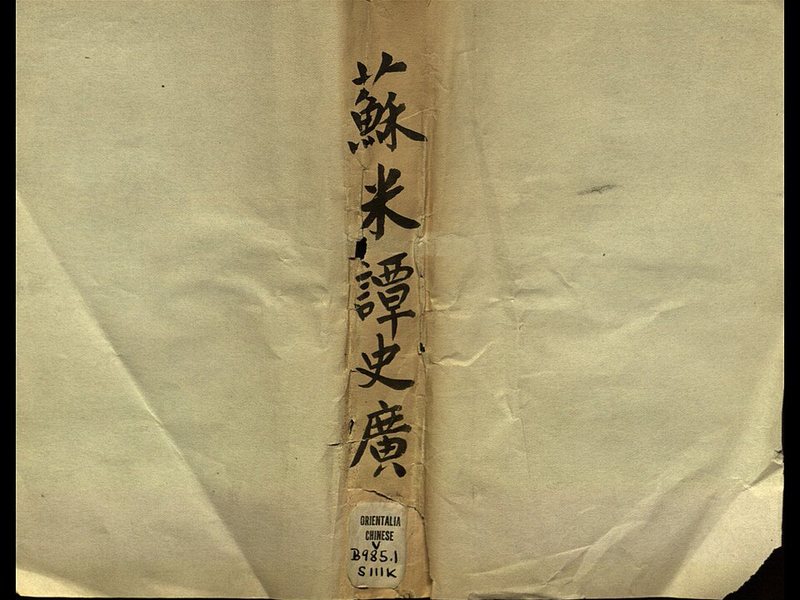 蘇米譚史廣
ORIENTALIA
CHINESE
V
B985.1
S111K